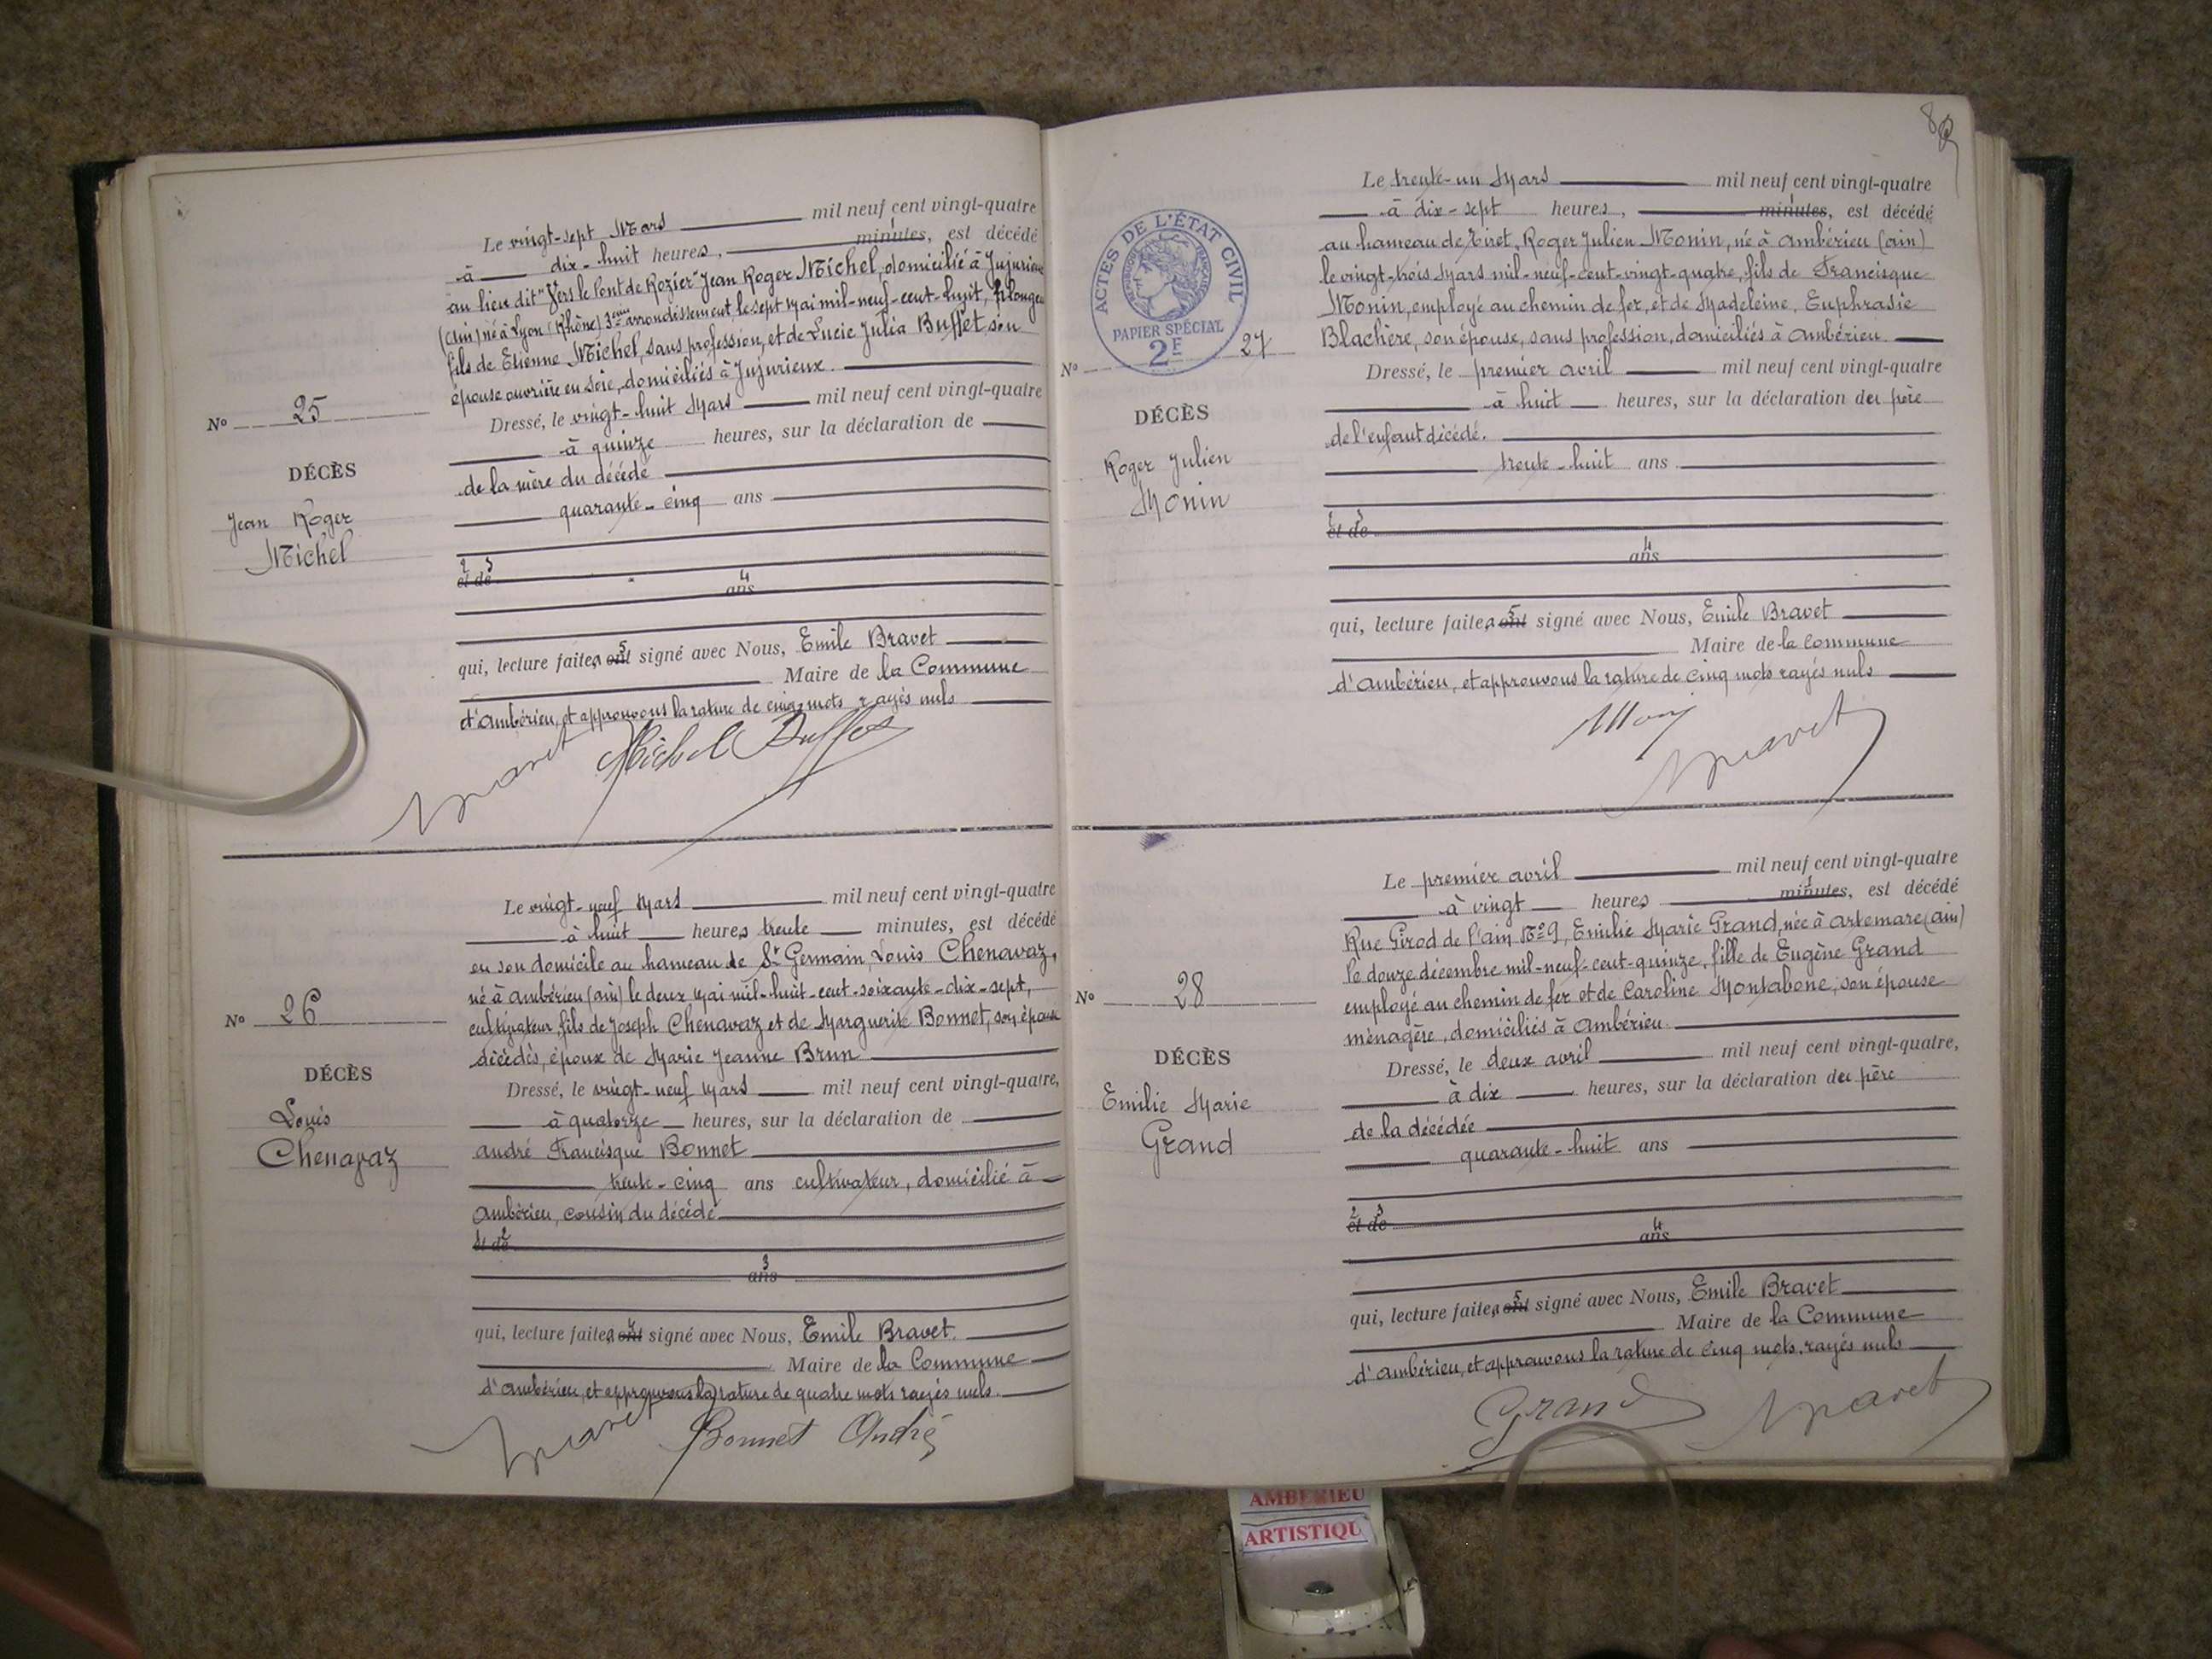 Le vingt-sept Mars mil neuf cent vingt-quatre
à dix-huit heures, minutes, est décédé
au lieu dit "Vers le Pont de Rozier" Jean Roger Michel, domicilié à Jujurieux
(Ain) né à Lyon (Rhône) 3eme arrondissement, le sept Mai mil-neuf-cent-huit,
fils de Etienne Michel, sans profession, et de Lucie Julia Buffet, son
épouse ouvrière en soie, domiciliés à Jujurieux.
No 25
Dressé, le vingt-huit Mars mil neuf cent vingt-quatre
à quinze heures, sur la déclaration de
DÉCÈS
de la mère du décédé
Jean Roger
Michel
quarante-cinq ans
2 3
et de
4
ans
5
qui, lecture faite, a ont signé avec Nous, Emile Bravet
Maire de la Commune
d'Ambérieu, et approuvons la rature de cinq mots rayés nuls
Bravet Michel Buffet
Le vingt-neuf Mars mil neuf cent vingt-quatre
à huit heures trente minutes, est décédé
en son domicile au hameau de St Germain, Louis Chenavaz,
né à Ambérieu (Ain) le deux Mai mil-huit-cent-soixante-dix-sept,
No 26
cultivateur, fils de Joseph Chenavaz et de Marguerite Bonnet, son épouse
décédés, époux de Marie Jeanne Brun
DÉCÈS
Dressé, le vingt-neuf Mars mil neuf cent vingt-quatre,
Louis
Chenavaz
à quatorze heures, sur la déclaration de
André Francisque Bonnet
trente-cinq ans cultivateur, domicilié à
Ambérieu, cousin du décédé
et de
3
ans
qui, lecture faite, a ont signé avec Nous, Emile Bravet.
Maire de la Commune
d'Ambérieu, et approuvons la rature de quatre mots rayés nuls.
Bravet Bonnet André
8
Le trente-un Mars mil neuf cent vingt-quatre
à dix-sept heures, minutes, est décédé
au hameau de Tiret, Roger Julien Monin, né à Ambérieu (Ain)
le vingt-trois Mars mil-neuf-cent-vingt-quatre, fils de Francisque
Monin, employé au chemin de fer, et de Madeleine, Euphrasie
Blachère, son épouse, sans profession, domiciliés à Ambérieu
ACTES DE L'ÉTAT CIVIL
RÉPUBLIQUE FRANÇAISE
PAPIER SPÉCIAL
2F
No 27
Dressé, le premier avril mil neuf cent vingt-quatre
à huit heures, sur la déclaration du père
DÉCÈS
de l'enfant décédé.
Roger Julien
Monin
trente-huit ans
2 3
et de
4
ans
5
qui, lecture faite, a ont signé avec Nous, Emile Bravet
Maire de la Commune
d'Ambérieu, et approuvons la rature de cinq mots rayés nuls
Bravet
Le premier avril mil neuf cent vingt-quatre
à vingt heures minutes, est décédé
Rue Girod de l'Ain No 9, Emilie Marie Grand, née à Artemare (Ain)
le douze décembre mil-neuf-cent-quinze, fille de Eugène Grand
No 28
employé au chemin de fer et de Caroline Montabone, son épouse
ménagère, domiciliés à Ambérieu.
DÉCÈS
Dressé, le deux avril mil neuf cent vingt-quatre,
Emilie Marie
Grand
à dix heures, sur la déclaration du père
de la décédée
quarante-huit ans
2 3
et de
4
ans
5
qui, lecture faite, a ont signé avec Nous, Emile Bravet
Maire de la Commune
d'Ambérieu, et approuvons la rature de cinq mots rayés nuls
Grand Bravet
AMBERIEU
ARTISTIQU